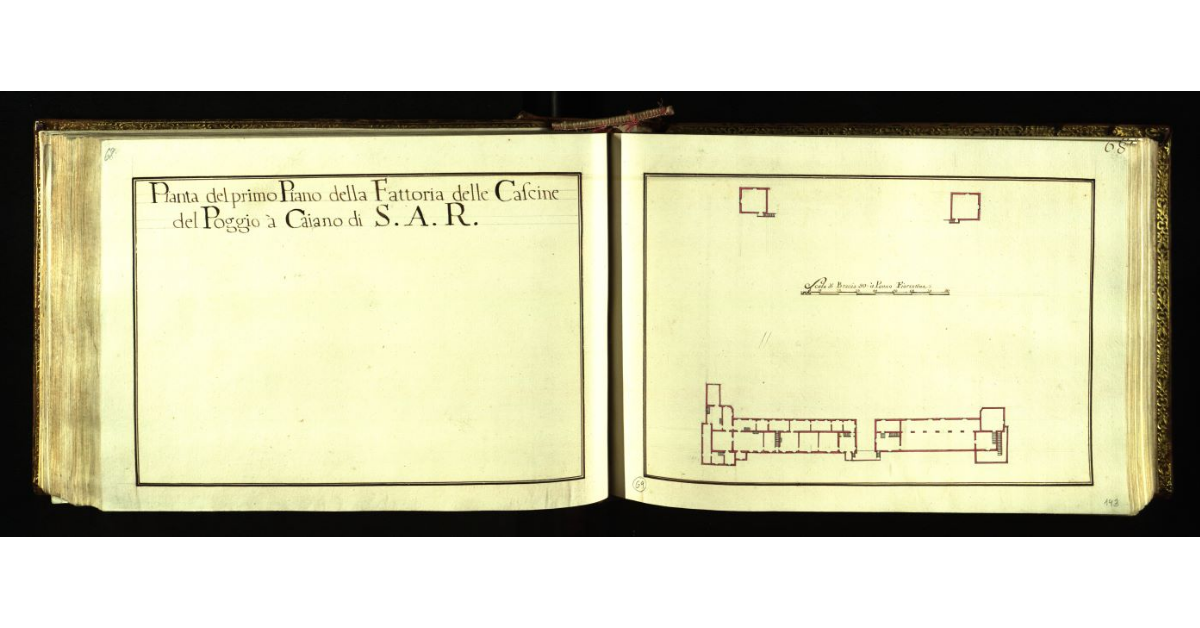 68
Pianta del primo Piano della Fattoria delle Caſcine
del Poggio à Caiano di S. A. R.
68
Scala di Braccia 80 à Panno Fiorentine
69
143